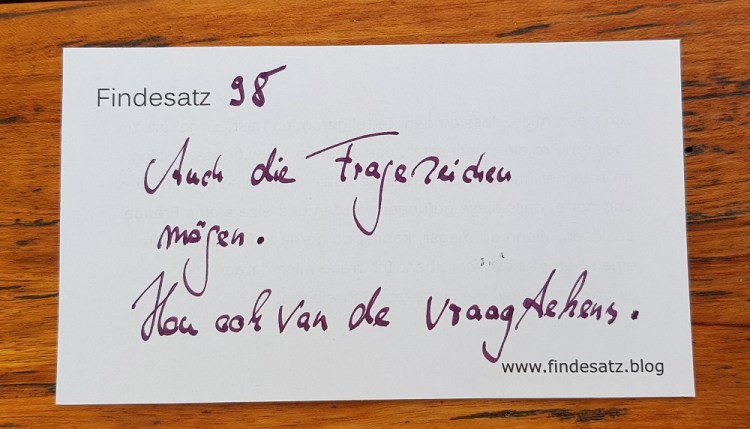 Findesatz 98
Auch die Fragezeichen
mögen.
Hou ook van de vraagtekens.
www.findesatz.blog